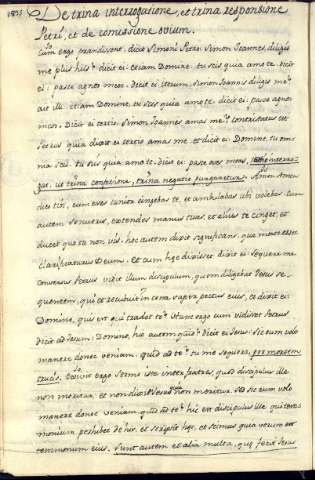 De trina interrogatione, et trina responsione
Petri, et de comissione ovium.
Cum ergo prandissent, dicit Simoni Petro. Simon Joannes diligis
me plus his? dicit ei: etiam Domine, tu scis quia amo te. dicit
ei: pasce agnos meos. Dicit ei iterum. Simon Joannis diligis me?
ait illi: etiam Domine, tu scis quia amo te. dicit ei: pasce agnos
meos. Dicit ei tertio. Simon Joannes amas me? contristatus est
Petrus quia dixit ei tertio amas me. et dicit ei: Domine, tu omnia
scis: tu scis quia amo te. dicit ei: pasce oves meas,
ut trina confessione, trina negatio purgaretur. Amen Amen
dico tibi, cum esses iunior cingebas te, et ambulabas ubi volebas. Cum
autem senueris, extendes manus tuas, et alius te cinget, et
ducet quo tu non vis. hoc autem dixit significans, qua morte esset
clarificaturus Deum. et cum hoc dixisset dicit ei: sequere me.
conversus Petrus vidit illum discipulum, quem diligebat Jesus sequentem,
qui et recubuit in cena supra pectus eius, et dixit ei:
Domine, quis est qui tradet te? Hunc ergo cum vidisset Petrus
dicit ad Jesum: Domine, hic autem quid? dicit ei Jesus: Sic eum volo
manere donec veniam. quid ad te? tu me sequere, per mortem
crucis. Exivit ergo sermo iste inter fratres, quod discipulus ille
non moritur, et non dixit Jesus non moritur. sed sic eum volo
manere donec veniam quid ad te? hic est discipulus ille qui testimonium
perhibet de his, et scripsit haec, et scimus quia verum est
testimonium eius. sunt autem et alia multa, quae fecit Jesus